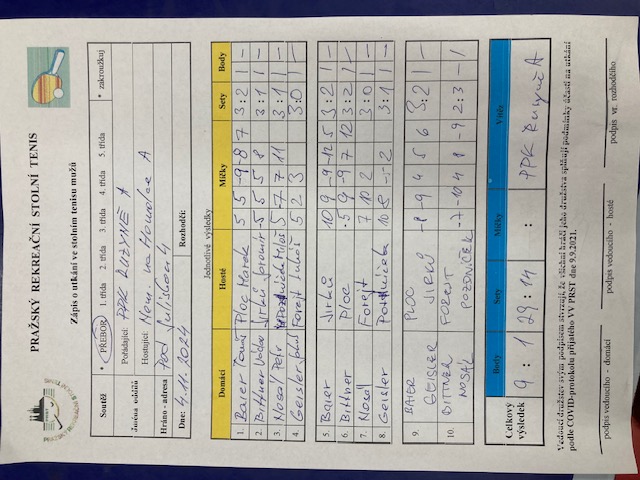 PRAŽSKÝ REKREAČNÍ STOLNÍ TENIS
Zápis o utkání ve stolním tenisu mužů
Soutěž * PŘEBOR 1. třída 2. třída 3. třída 4. třída 5. třída * zakroužkuj
Jména oddílů Pořádající: PPK RUZYNĚ A
Hostující: Nem. na Homolce A
Hráno - adresa Pod Juliskou 4
Dne: 4.11.2024 Rozhodčí:
Jednotlivé výsledky
Domácí Hosté Míčky Sety Body
1. Baier Tomáš Ploc Marek 5 5 -9 -8 7 3:2 1 -
2. Bittner Jirků Jaromír 5 5 8 3:1 1 -
3. Nosál Petr Miloš 5 7 11 3:1 1 -
4. Geisler Forejt 5 2 3 3:0 1 -
5. Baier Jirků 10 9 -9 -12 5 3:2 1 -
6. Bittner Ploc 5 -9 7 12 3:2 1 -
7. Nosál Forejt 7 10 2 3:0 1 -
8. Geisler 3:1 1 -
9. BAIER PLOC
GEISLER JIRKŮ -8 -9 4 5 6 3:2 1 -
10. BITTNER FOREJT
NOSÁL -7 -10 4 8 -9 2:3 - 1
Celkový výsledek Body Sety Míčky Vítěz
9 : 1 29 : 14 : PPK Ruzyně A
Vedoucí družstev svým podpisem stvrzují, že všichni hráči jeho družstva splňují podmínky účasti na utkání
podle COVID-protokolu přijatého VV PRST dne 9.9.2021.
podpis vedoucího - domácí podpis vedoucího - hosté podpis vr. rozhodčího